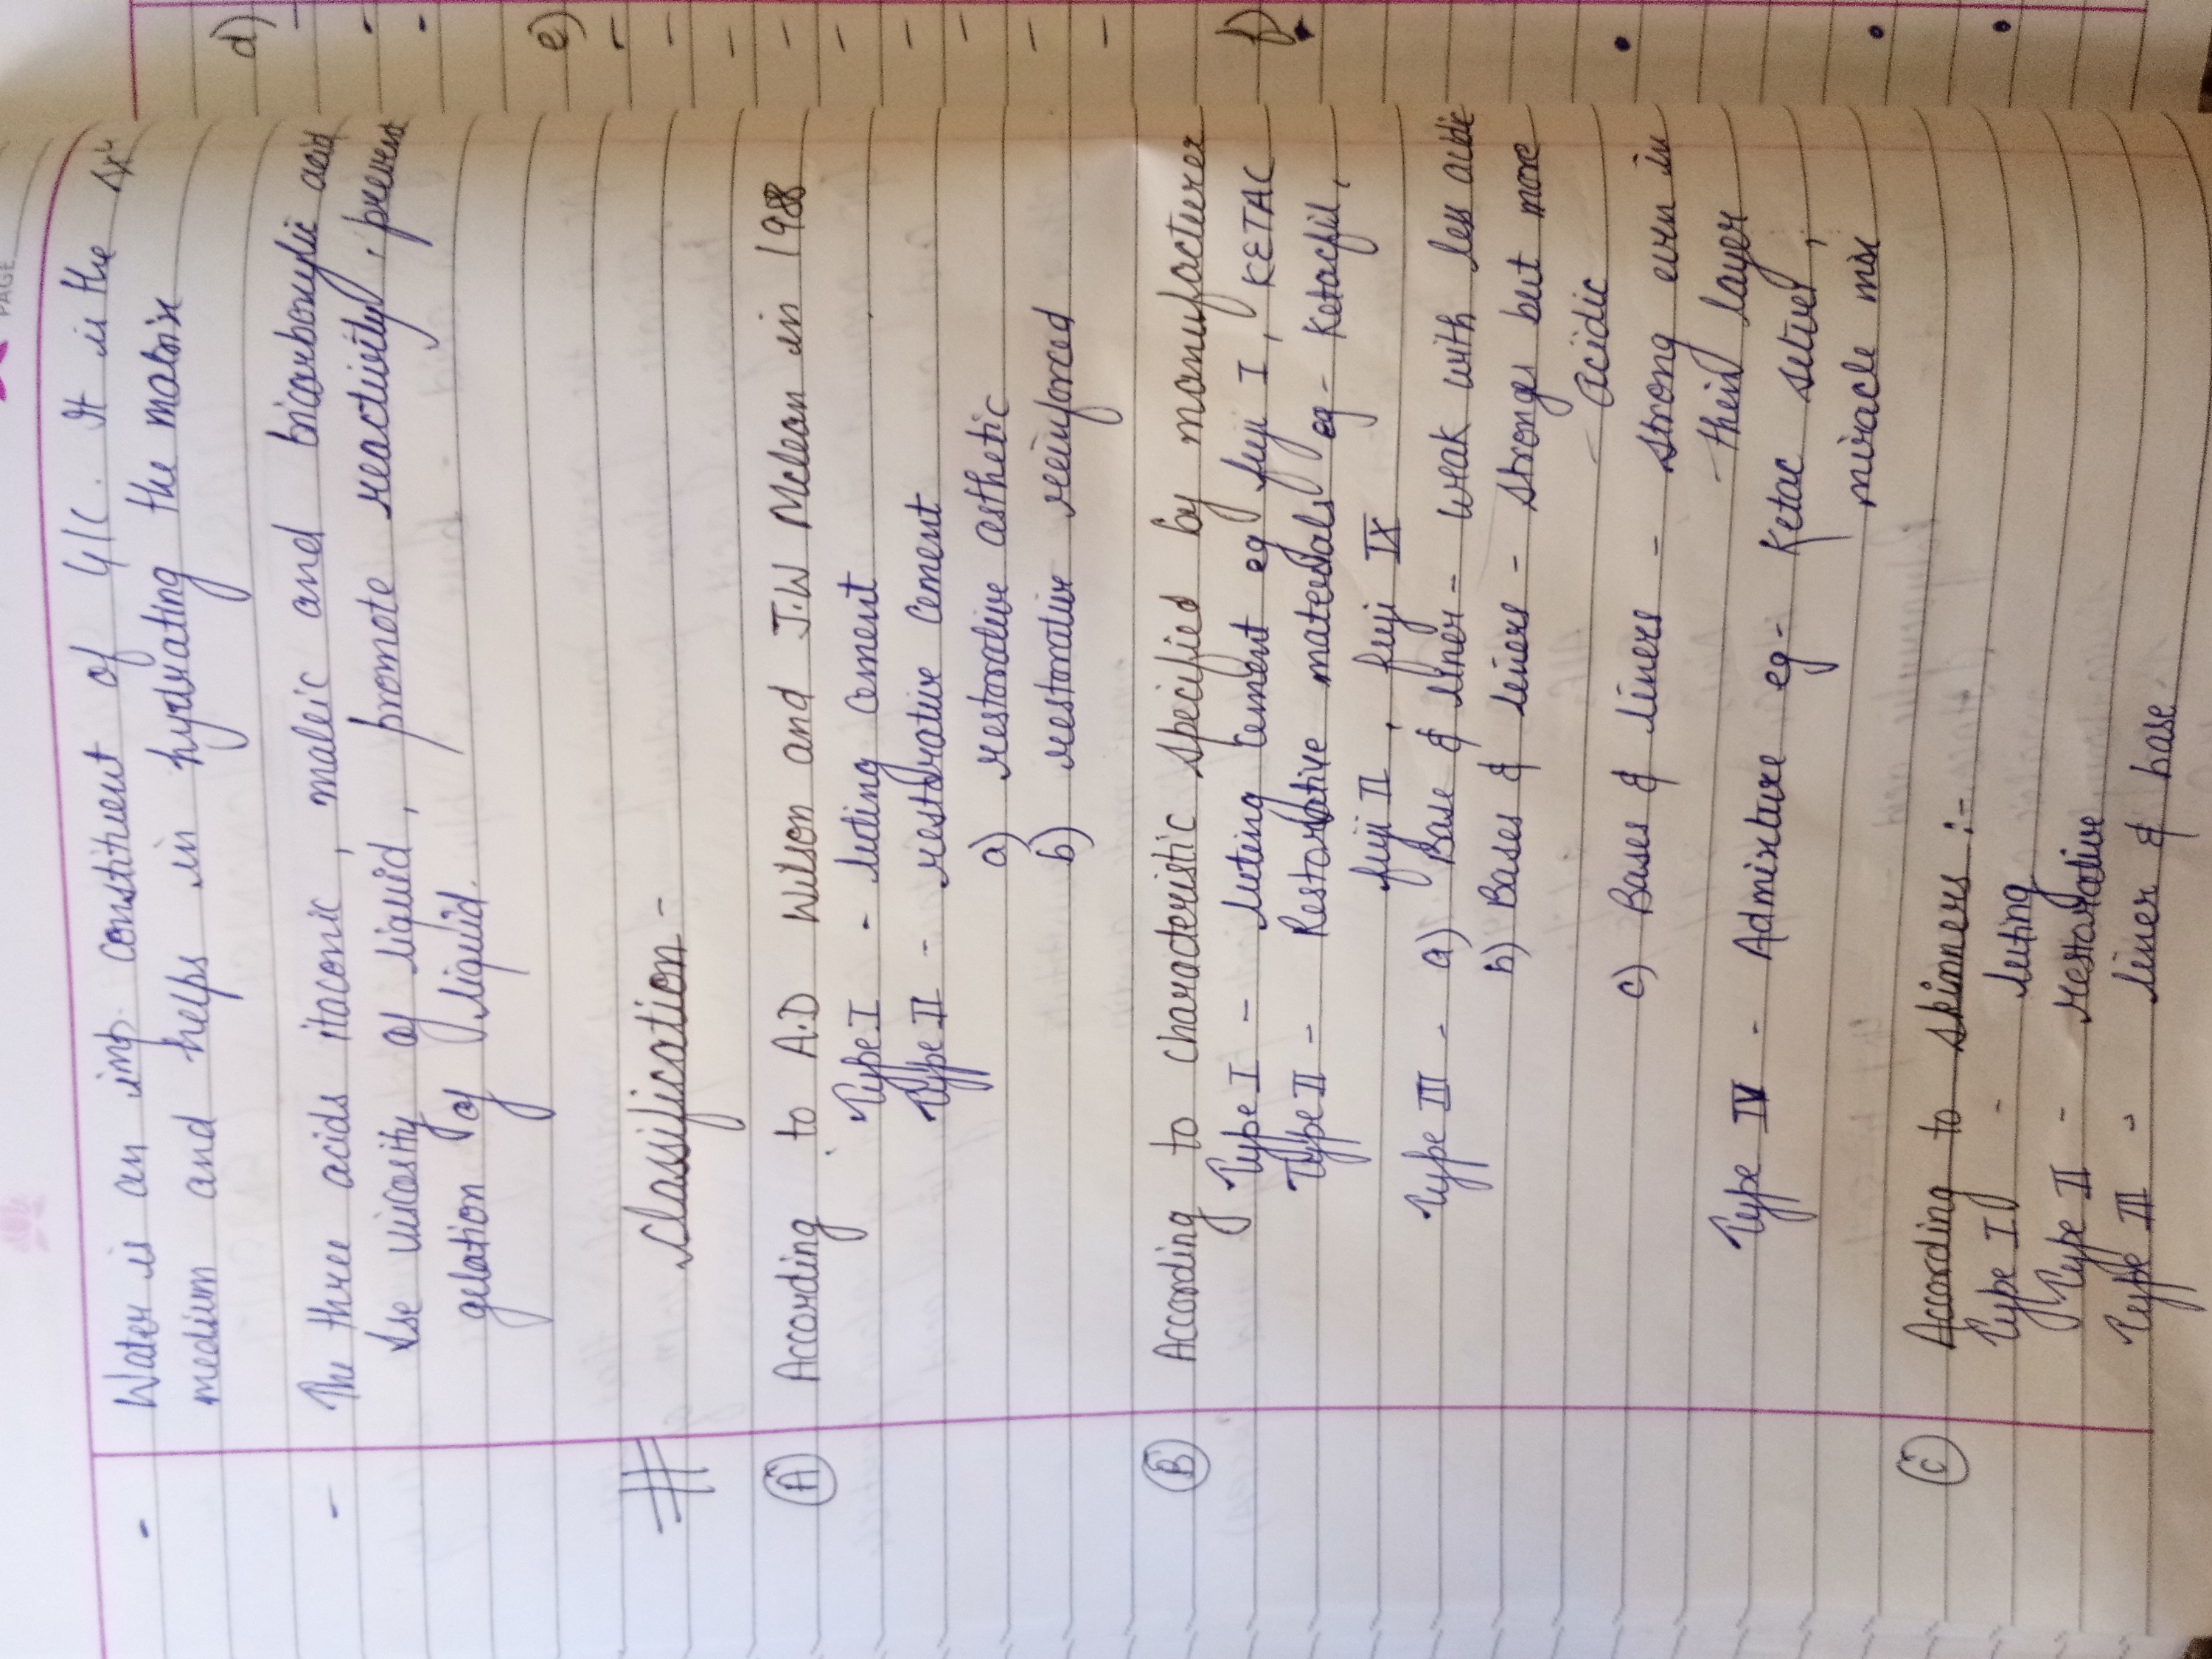 PAGE
- Water is an imp. constituent of GIC. It is the rxn
medium and helps in hydrating the matrix
- The three acids itaconic, maleic and tricarboxylic acid
↓se viscosity of liquid, promote reactivity, prevent
gelation of liquid.
# Classification -
(A) According to A.D Wilson and J.W Mclean in 1988
Type I - luting cement
Type II - restorative cement
a) restorative asthetic
b) restorative reinforced
(B) According to characteristic specified by manufacturer
Type I - luting cement eg fuji I, KETAC
Type II - Restorative materials eg - Ketacfil,
fuji II, fuji IX
Type III - a) Base & liner - weak with less acidic
b) Bases & liners - stronger but more
- acidic
c) Bases & liners - strong even in
- thin layer
Type IV - Admixture eg - Ketac silver,
miracle mix
(C) According to skinners :-
Type I - luting
Type II - restorative
Type III - liner & base.
d)
e)
f)